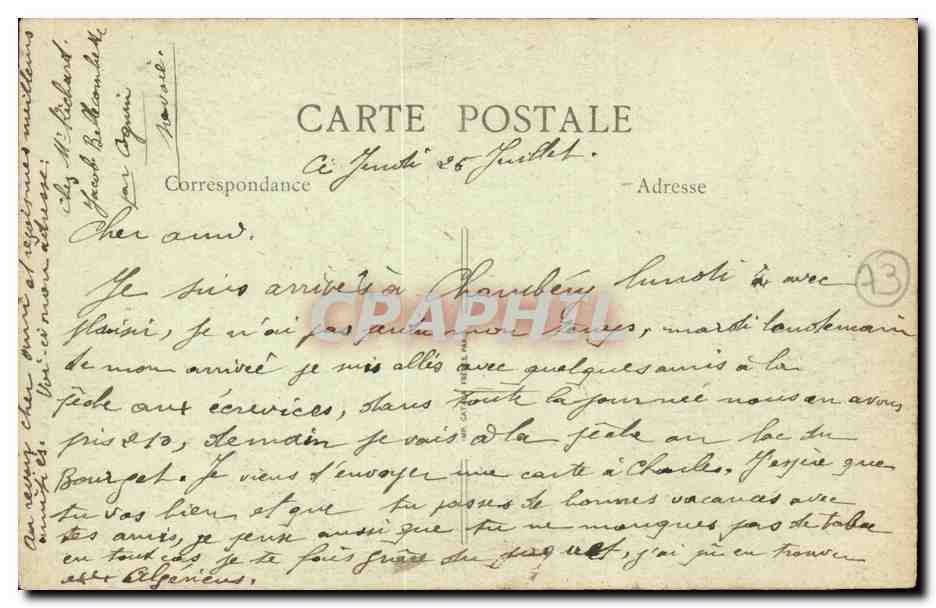 CARTE POSTALE
Ce Jeudi 25 Juillet.
Correspondance
Adresse
Cher ami.
Je suis arrivé à Chambéry lundi à avec
plaisir, je n'ai pas perdu mon temps, mardi lendemain
de mon arrivé je suis allés avec quelques amis à la
pêche aux écrevices, dans toute la journée nous en avons
pris 210, demain je vais à la pêche au lac du
Bourget. Je viens d'envoyer une carte à Charles. J'espère que
tu vas bien et que tu passes de bonnes vacances avec
tes amis, je pense aussi que tu ne manques pas de tabac
en tout cas je te fais grâce du paquet, j'ai pu en trouver
Algériens.
Au revoir cher ami et reçois mes meilleurs
amitiés. Voici mon adresse:
Chez Mr Richard.
Jacob Bellecombette
par Cognin
Savoie.
73
CPAPHIL